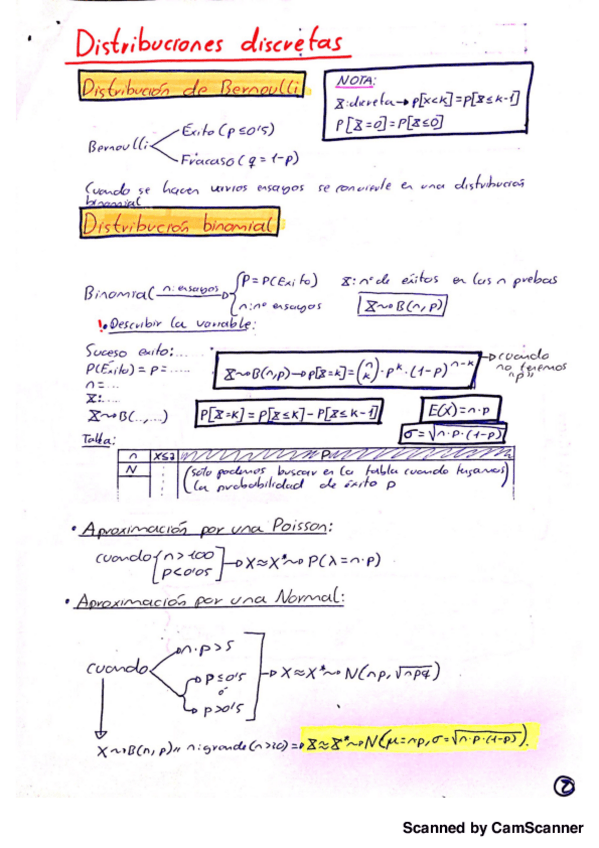 Distribuciones discretas
Distribución de Bernoulli
NOTA:
X: discreta → p[x<k] = p[X≤k-1]
P[X=0] = P[X≤0]
Bernoulli
Éxito (p≤0'5)
Fracaso (q = 1-p)
Cuando se hacen varios ensayos se convierte en una distribución
binomial
Distribución binomial
Binomial n: ensayos → P = P(Éxito)
n: nº ensayos
X: nº de éxitos en las n prebas
X~B(n,p)
! Describir la variable:
Suceso éxito: .....
P(Éxito) = p = .....
n = ...
X: ....
X~B(..., ...)
X~B(n,p) → p[X=k] = (n k) · p^k · (1-p)^n-k
→ cuando
no tenemos
"p"
P[X=k] = P[X≤k] - P[X≤k-1]
E(X) = n·p
σ = √n·p·(1-p)
Tabla:
n X≤ P
N (solo podemos buscar en la tabla cuando tengamos)
(la probabilidad de éxito p
• Aproximación por una Poisson:
cuando {n>100
p<0'05] → X≈X*~P(λ=n·p)
• Aproximación por una Normal:
cuando
n·p>5
p≤0'5
ó
p>0'5
→ X≈X*~N(np, √npq)
X~B(n,p) // n: grande (n>20) => X≈X*~N(μ=np, σ=√n·p·(1-p)).
2
Scanned by CamScanner